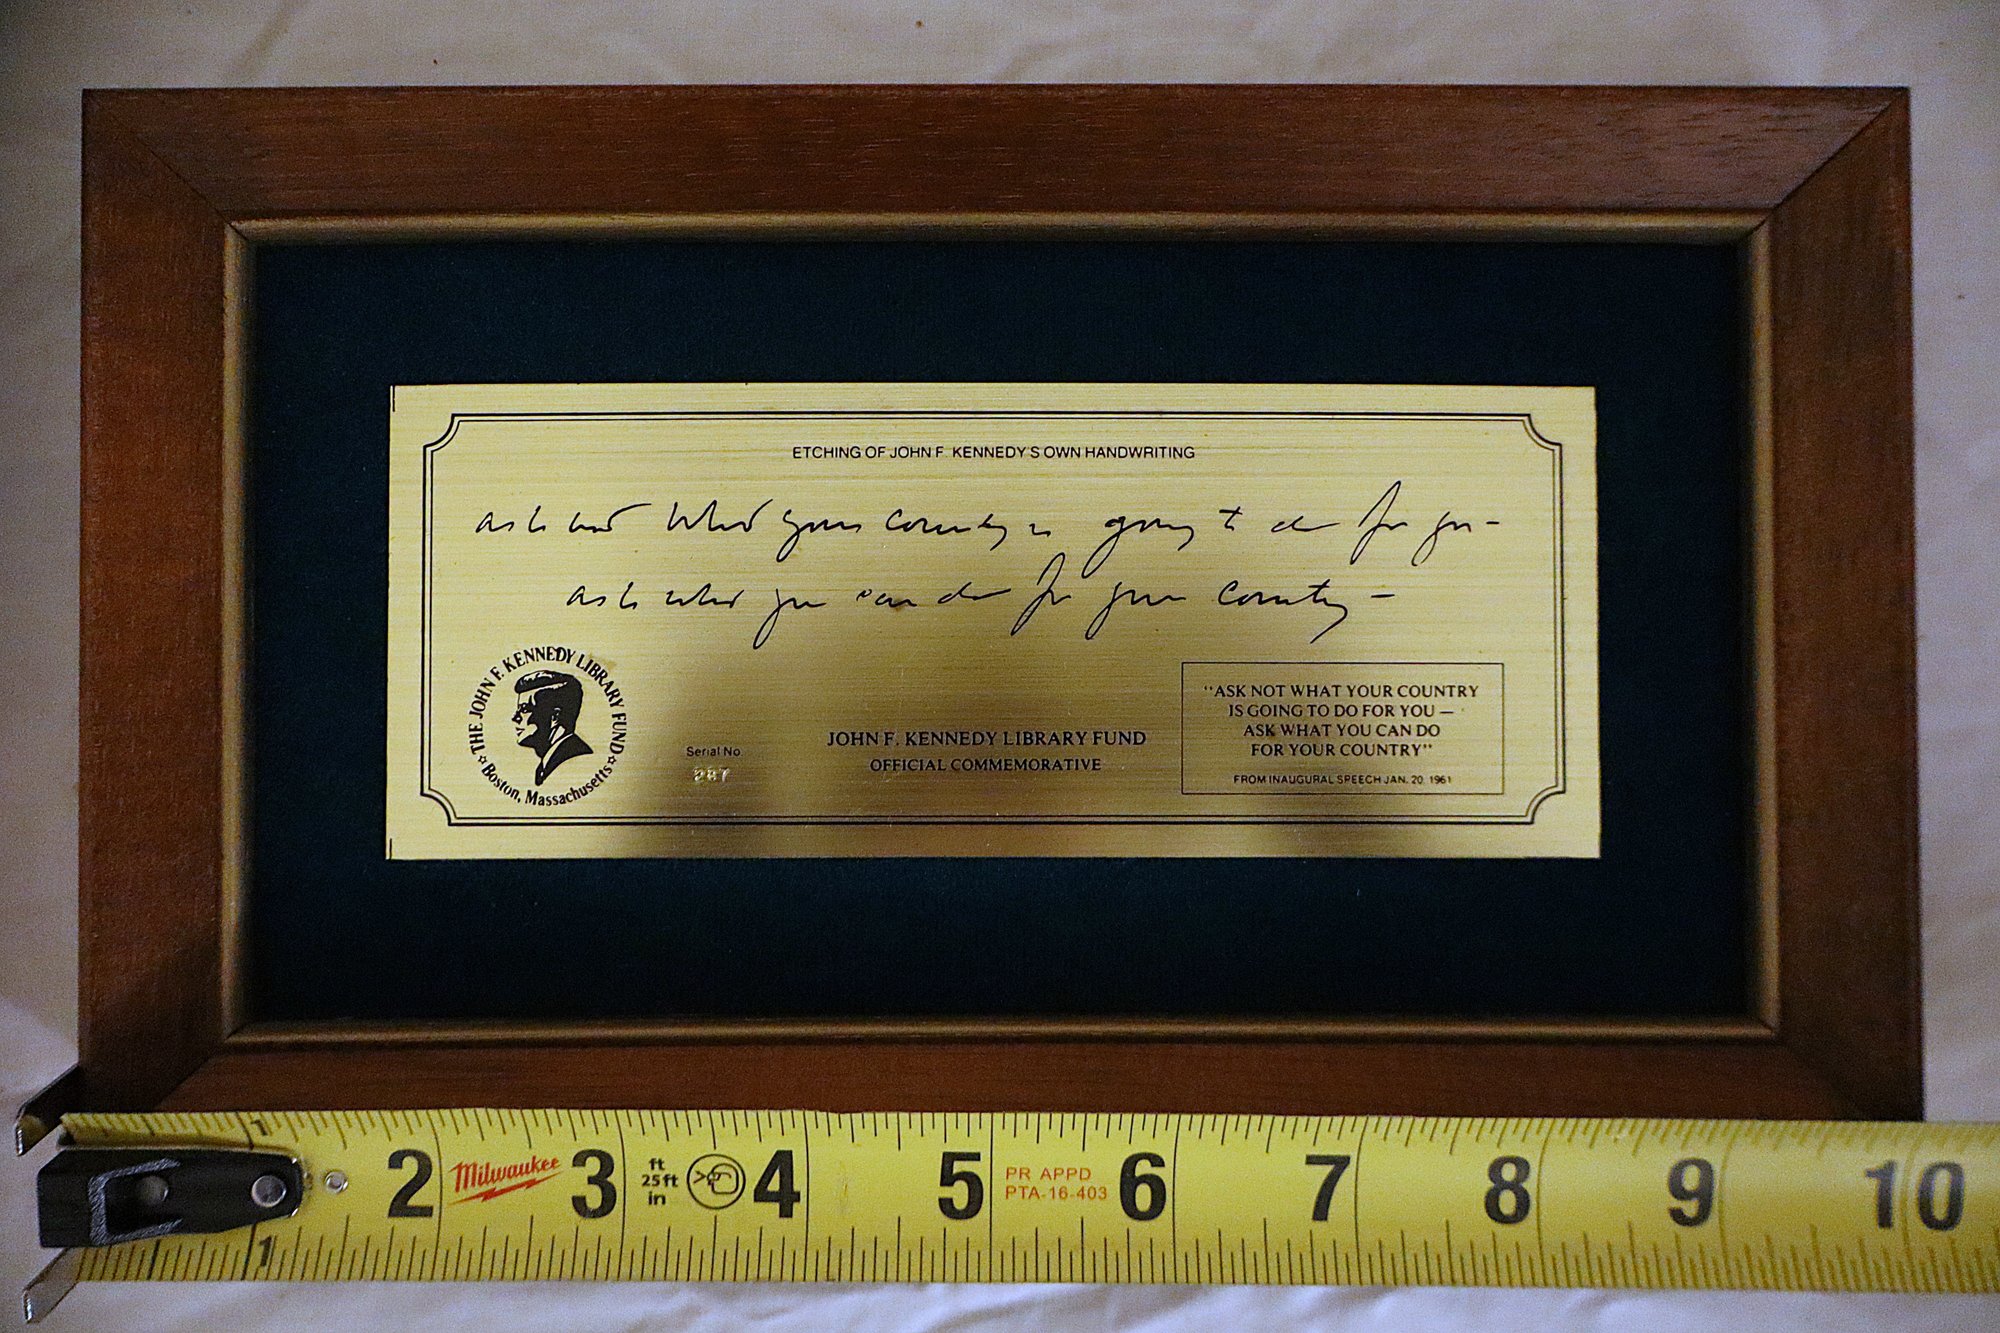 ETCHING OF JOHN F. KENNEDY'S OWN HANDWRITING
ask not what your country is going to do for you—
ask what you can do for your country—
THE JOHN F. KENNEDY LIBRARY FUND
☆ Boston, Massachusetts ☆
Serial No.
287
JOHN F. KENNEDY LIBRARY FUND
OFFICIAL COMMEMORATIVE
"ASK NOT WHAT YOUR COUNTRY
IS GOING TO DO FOR YOU —
ASK WHAT YOU CAN DO
FOR YOUR COUNTRY"
FROM INAUGURAL SPEECH JAN. 20, 1961
1
2 Milwaukee 3 ft 25ft in 4 5 PR APPD PTA-16-403 6 7 8 9 10
1